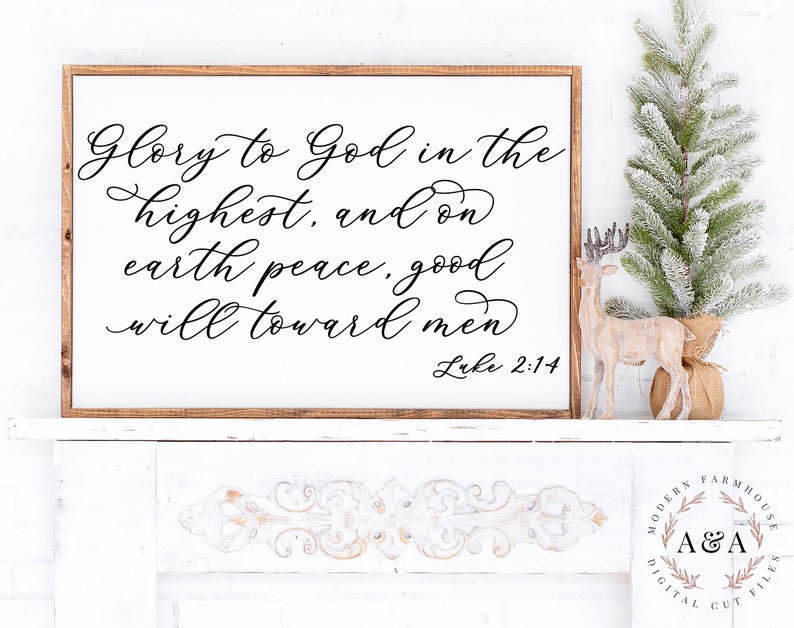 Glory to God in the
highest, and on
earth peace, good
will toward men
Luke 2:14
MODERN FARMHOUSE
A&A
DIGITAL CUT FILES